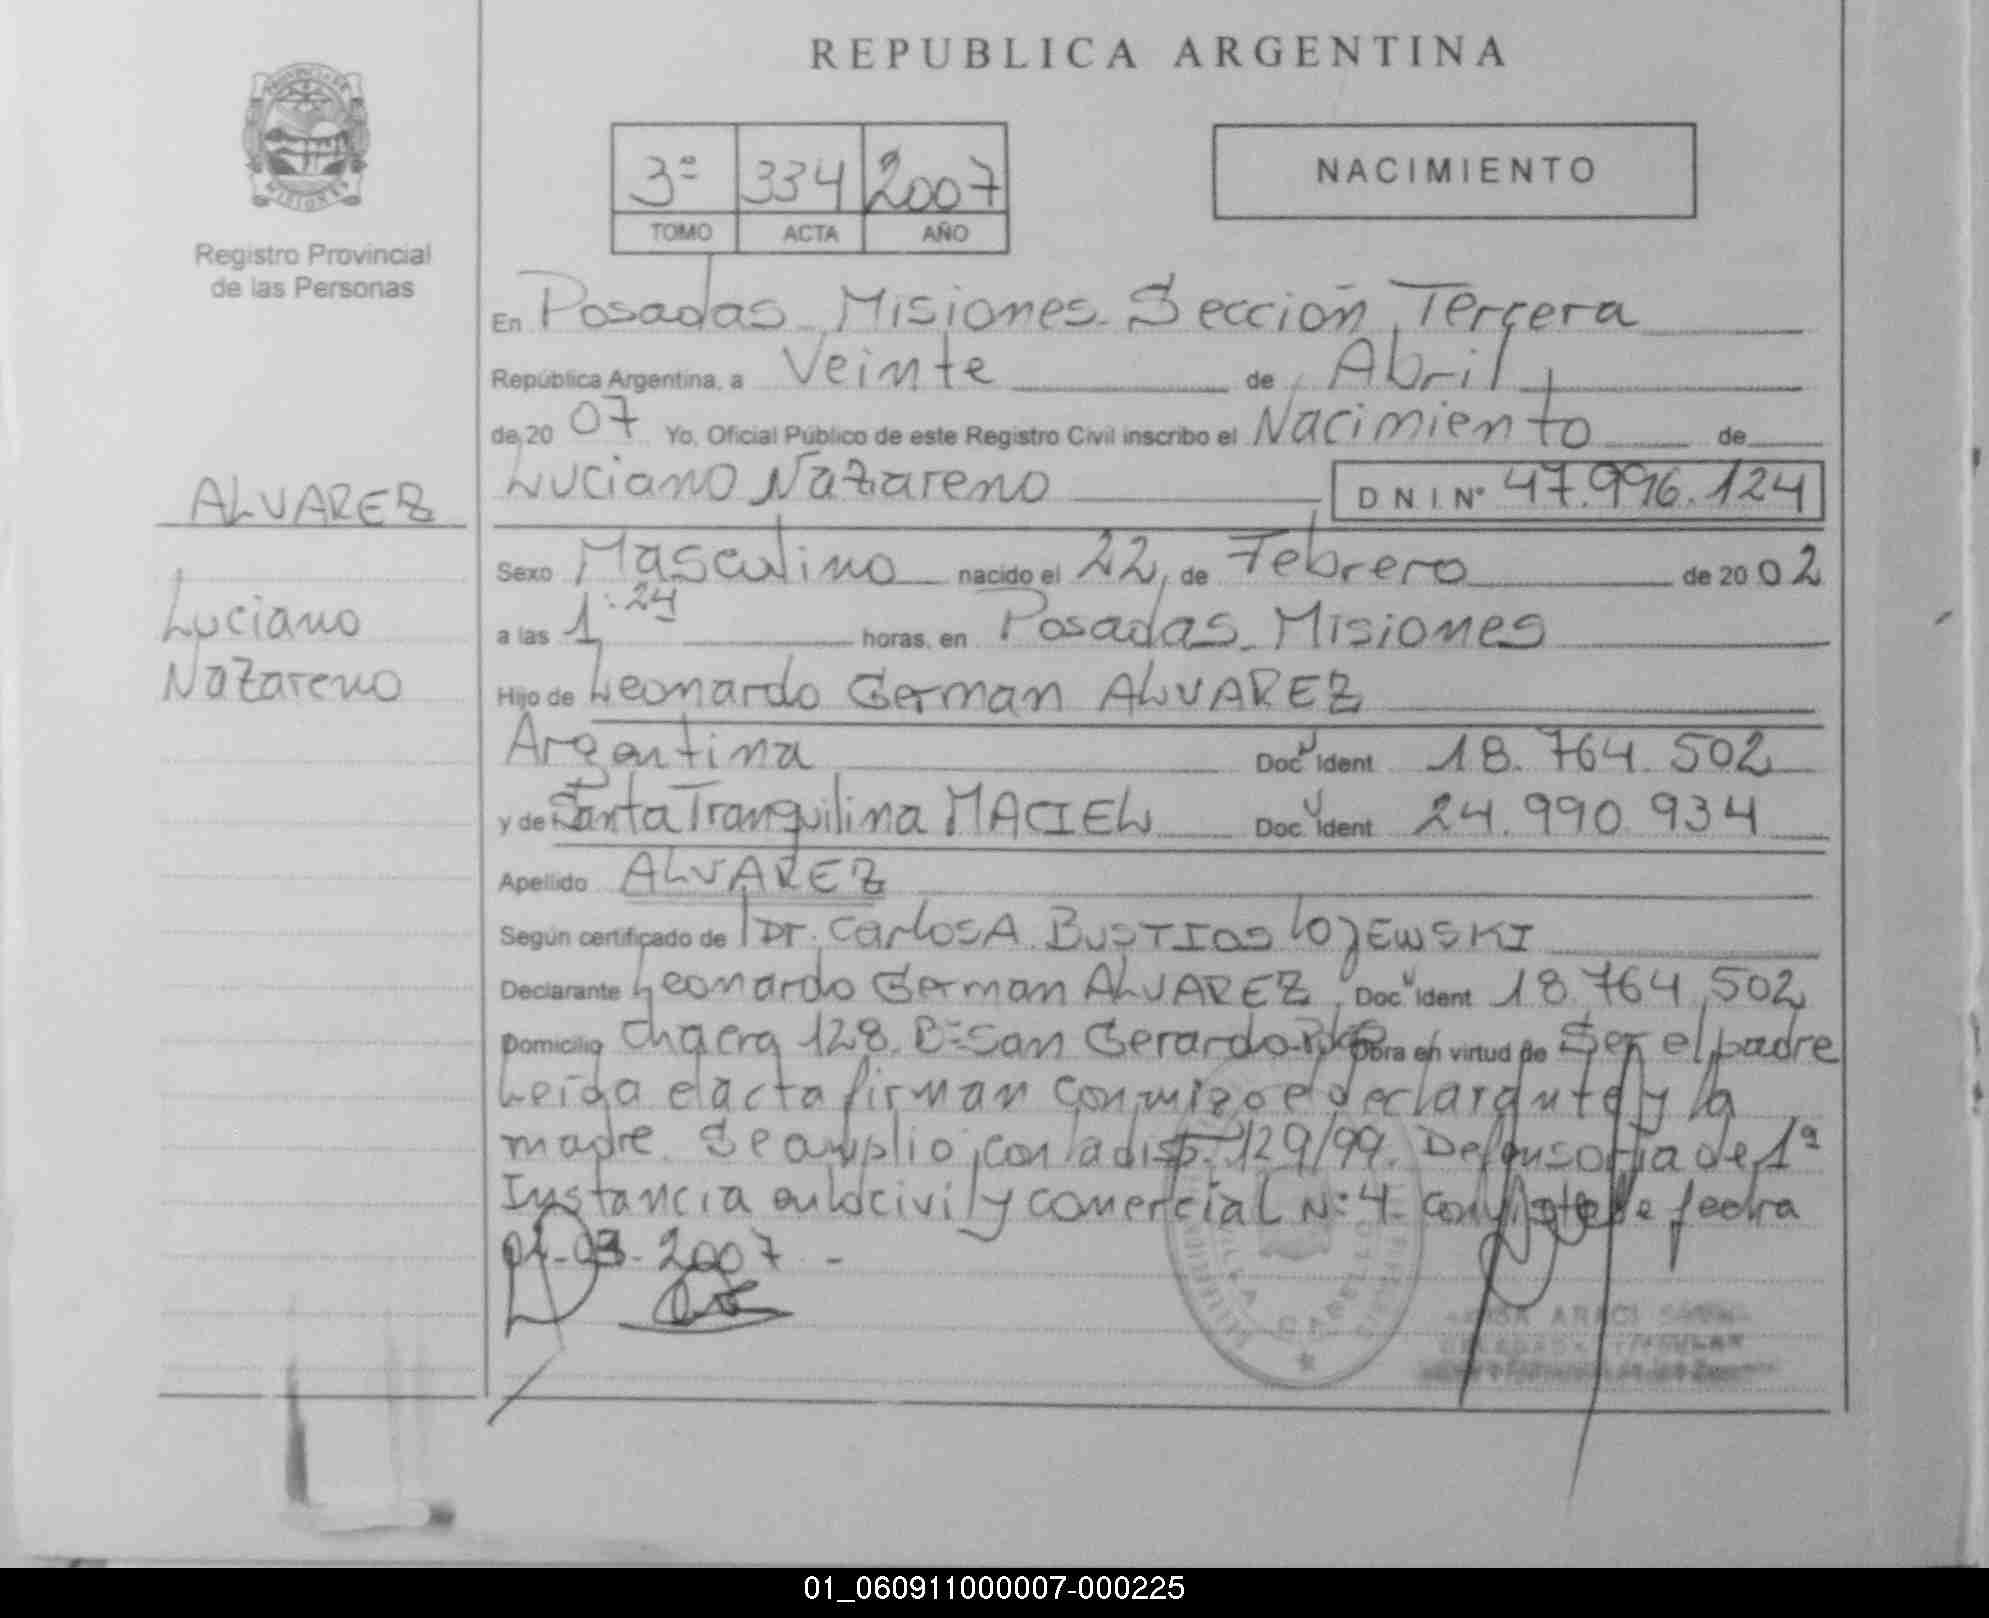 REPUBLICA ARGENTINA
3ª 334 2007
TOMO ACTA AÑO
NACIMIENTO
Registro Provincial
de las Personas
ALVAREZ
Luciano
Nazareno
En Posadas Misiones. Sección Tercera
República Argentina, a Veinte de Abril
de 20 07 Yo, Oficial Público de este Registro Civil inscribo el Nacimiento de
Luciano Nazareno D N.I. Nº 47.996.124
Sexo Masculino nacido el 22 de Febrero de 20 02
a las 1:24 horas, en Posadas Misiones
Hijo de Leonardo German ALVAREZ
Argentina Doc Ident 18.764.502
y de Santa Tranquilina MACIEL Doc Ident 24.990.934
Apellido ALVAREZ
Según certificado de Dr. Carlos A. BUSTIOS LOJEWSKI
Declarante Leonardo German ALVAREZ Doc Ident 18.764.502
Domicilio Chacra 128. Bº San Gerardo Obra en virtud de Ser el padre
Leída el acta firman conmigo el declarante y la
madre. Se amplio con la disp. 129/99. Defensoria de 1ª
Instancia en lo civil y comercial Nº 4 de fecha
03-2007 -
TITULAR
01_060911000007-000225